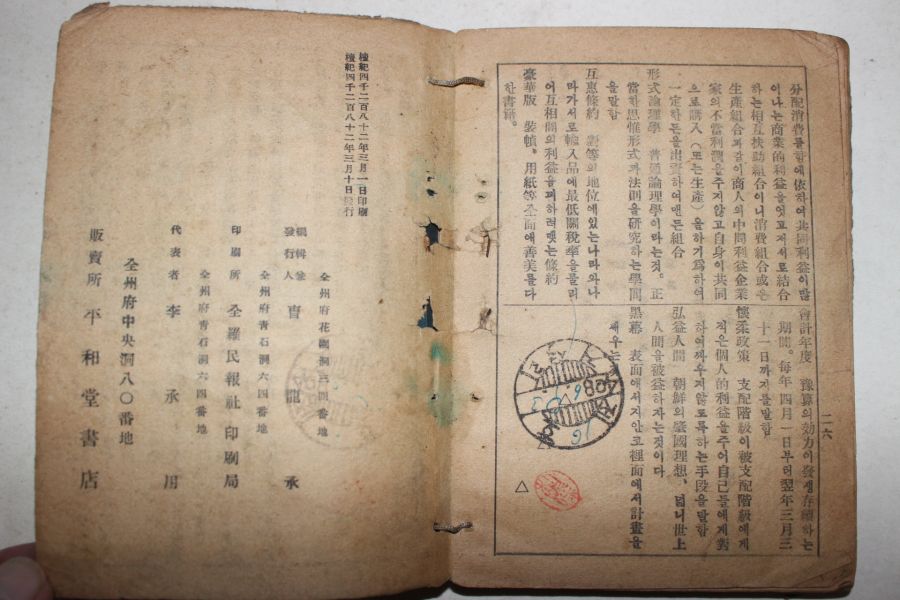 分配消費를함에依하여共同利益이많
이나는商業的利益을얻고저서로結合
하는相互扶助組合이니消費組合或은
生産組合과같이商人의中間利益企業
家의不當利潤을주지않고自身이共同
으로購入(또는生産)을하기爲하여
一定한돈을出資하여맨든組合
形式論理學 普通論理學이라는것。正
當한思惟形式과法則을硏究하는學問
을말함
互惠條約 對等의地位에있는나라와나
라가서로輸入品에最低關稅率을물리
어互相間의利益을꾀하려맺는條約
豪華版 裝幀、用紙等全面에善美를다
한書籍。
二六
會計年度 豫算의効力이發生存續하는
期間。每年四月一日부터翌年三月三
十一日까지를말함
懷柔政策 支配階級이被支配階級에게
적은個人的利益을주어自己들에게對
하여깨우지않도록하는手段을말함
弘益人間 朝鮮의盛國理想、넓니世上
人間을被益하자는것이다
黑幕 表面에서지안코裡面에서計畫을
세우는
△
檀紀四千二百八十二年三月一日印刷
檀紀四千二百八十二年三月十日發行
全州府花園洞三四番地
編輯兼
發行人 曺龍承
全州府靑石洞六四番地
印刷所 全羅民報社印刷局
全州府靑石洞六四番地
代表者 李承用
全州府中央洞八〇番地
販賣所 平和堂書店